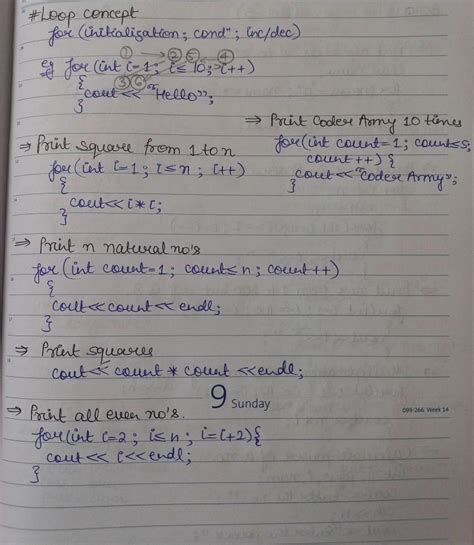 #Loop concept
for (initialization ; condⁿ ; inc/dec)
① ② ⑤ ④
eg for (int i=1 ; i≤ 10; i++)
③ ⑥
{
cout << "Hello";
}
⇒ Print Coder Army 10 times
for(int count=1; count≤5;
count ++) {
cout<<"Coder Army";
}
⇒ Print square from 1 to n
for(int i=1 ; i≤n ; i++)
{
cout<< i*i;
}
⇒ Print n natural no's
for (int count=1 ; count≤ n ; count ++)
{
cout<< count << endl;
}
⇒ Print squares
cout<< count * count <<endl;
9 Sunday
099-266 Week 14
⇒ Print all even no's.
for(int i=2 ; i≤n ; i=i+2){
cout << i<<endl;
}